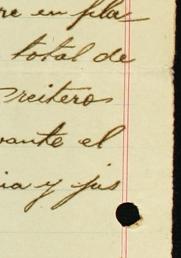 re en pla
total de
reitero
vante el
ia y jus